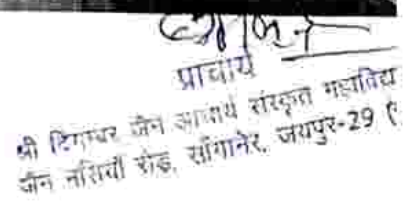 प्राचार्य
श्री दिगम्बर जैन आचार्य संस्कृत महाविद्य
जैन नसियाँ रोड, सांगानेर, जयपुर-29 (